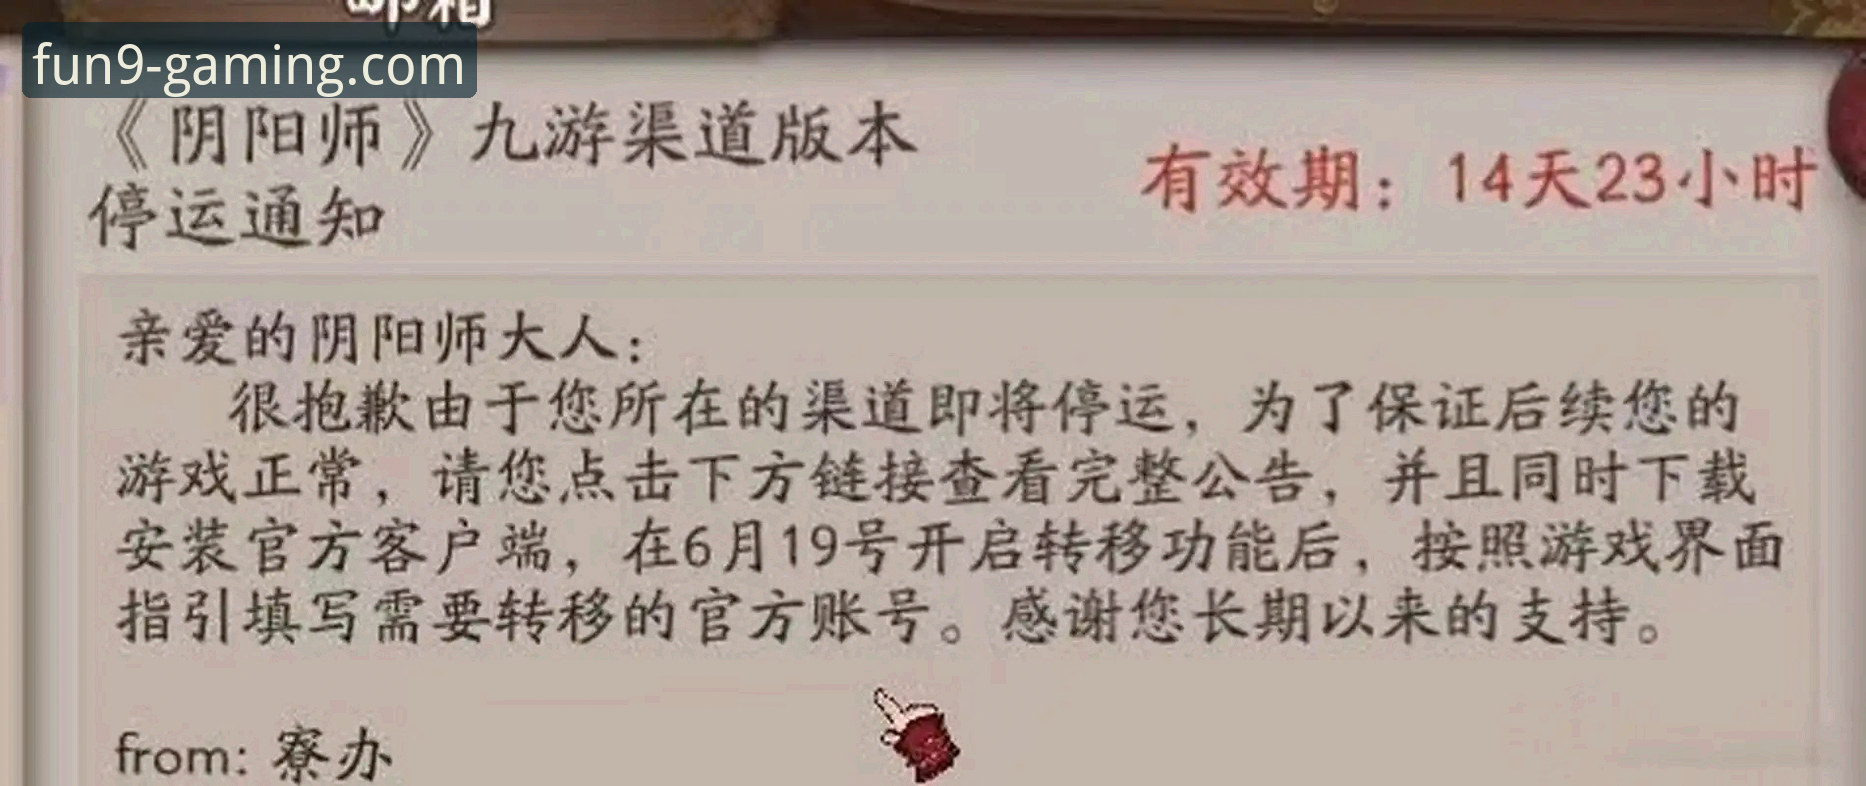 邮箱
fun9-gaming.com
《阴阳师》九游渠道版本
停运通知
有效期：14天23小时
亲爱的阴阳师大人：
很抱歉由于您所在的渠道即将停运，为了保证后续您的
游戏正常，请您点击下方链接查看完整公告，并且同时下载
安装官方客户端，在6月19号开启转移功能后，按照游戏界面
指引填写需要转移的官方账号。感谢您长期以来的支持。
from: 寮办